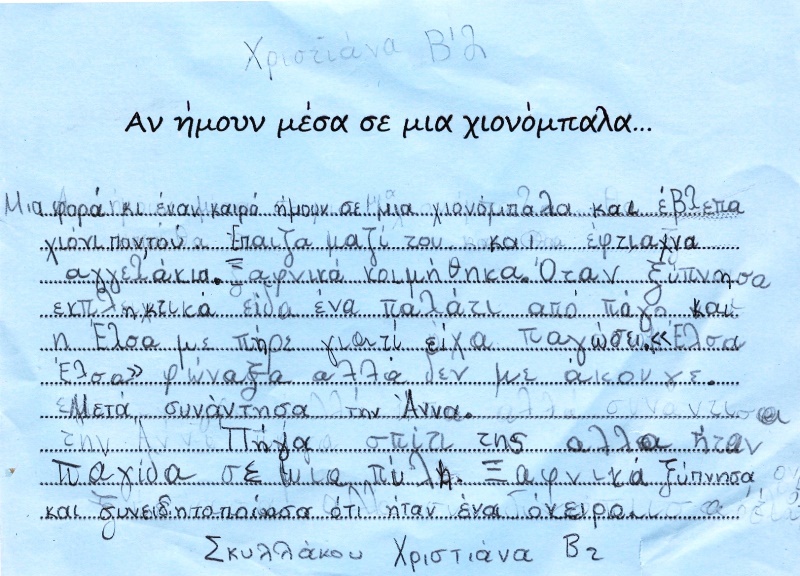 Χριστιάνα Β'2
Αν ήμουν μέσα σε μια χιονόμπαλα...
Μια φορά κι έναν καιρό ήμουν σε μια χιονόμπαλα και έβλεπα
χιόνι παντού. Έπαιζα μαζί του και έφτιαχνα
αγγελάκια. Ξαφνικά κοιμήθηκα. Όταν ξύπνησα
εκπληκτικά είδα ένα παλάτι από πάγο και
η Έλσα με πήρε γιατί είχα παγώσει. «Έλσα
Έλσα» φώναξα αλλά δεν με άκουγε.
Μετά συνάντησα την Άννα.
Πήγα σπίτι της αλλα ήταν
παγίδα σε μια πύλη. Ξαφνικά ξύπνησα
και συνειδητοποίησα ότι ήταν ένα όνειρο.
Σκυλλάκου Χριστιάνα Β2